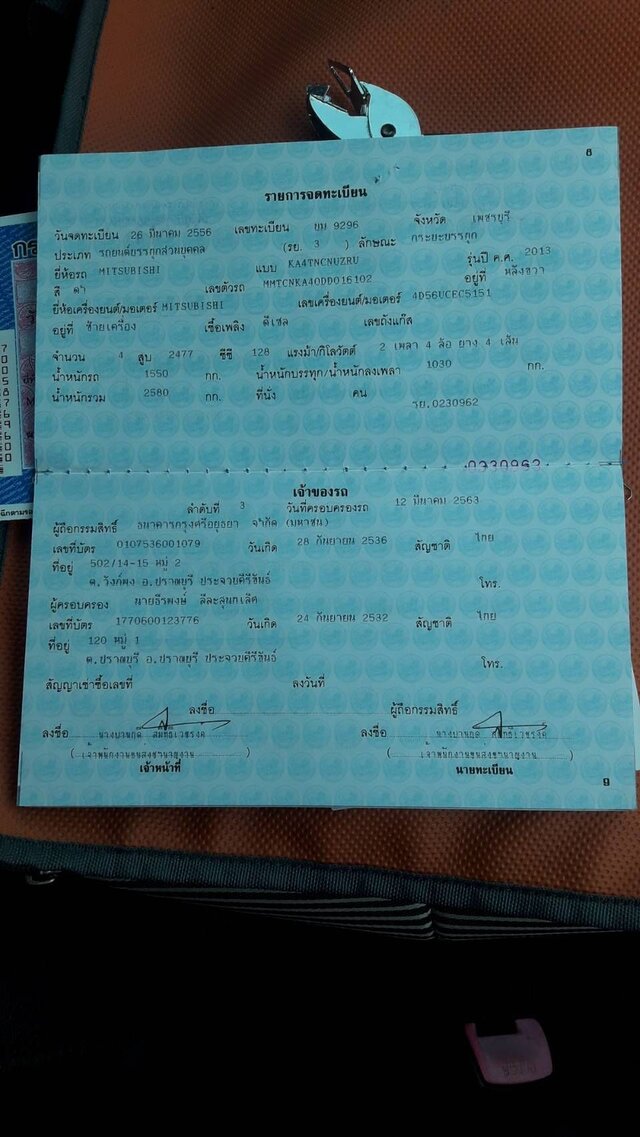 8
รายการจดทะเบียน
วันจดทะเบียน 26 มีนาคม 2556 เลขทะเบียน บม 9296 จังหวัด เพชรบุรี
ประเภท รถยนต์บรรทุกส่วนบุคคล (รย. 3 ) ลักษณะ กระบะบรรทุก
ยี่ห้อรถ MITSUBISHI แบบ KA4TNCNUZRU รุ่นปี ค.ศ. 2013
สี ดำ เลขตัวรถ MMTCNKA40DD016102 อยู่ที่ หลังขวา
ยี่ห้อเครื่องยนต์/มอเตอร์ MITSUBISHI เลขเครื่องยนต์/มอเตอร์ 4D56UCEC5151
อยู่ที่ ซ้ายเครื่อง เชื้อเพลิง ดีเซล เลขถังแก๊ส
จำนวน 4 สูบ 2477 ซีซี 128 แรงม้า/กิโลวัตต์ 2 เพลา 4 ล้อ ยาง 4 เส้น
น้ำหนักรถ 1550 กก. น้ำหนักบรรทุก/น้ำหนักลงเพลา 1030 กก.
น้ำหนักรวม 2580 กก. ที่นั่ง คน
รย.0230962
0230962
เจ้าของรถ
ลำดับที่ 3 วันที่ครอบครองรถ 12 มีนาคม 2563
ผู้ถือกรรมสิทธิ์ ธนาคารกรุงศรีอยุธยา จำกัด (มหาชน)
เลขที่บัตร 0107536001079 วันเกิด 28 กันยายน 2536 สัญชาติ ไทย
ที่อยู่ 502/14-15 หมู่ 2
ต.วังก์พง อ.ปราณบุรี ประจวบคีรีขันธ์ โทร.
ผู้ครอบครอง นายธีรพงษ์
เลขที่บัตร 1770600123776 วันเกิด 24 กันยายน 2532 สัญชาติ ไทย
ที่อยู่ 120 หมู่ 1
ต.ปราณบุรี อ.ปราณบุรี ประจวบคีรีขันธ์ โทร.
สัญญาเช่าซื้อเลขที่ ลงวันที่
ลงชื่อ ผู้ถือกรรมสิทธิ์
ลงชื่อ ลงชื่อ
(เจ้าพนักงานขนส่งชำนาญงาน) (เจ้าพนักงานขนส่งชำนาญงาน)
เจ้าหน้าที่ นายทะเบียน
9